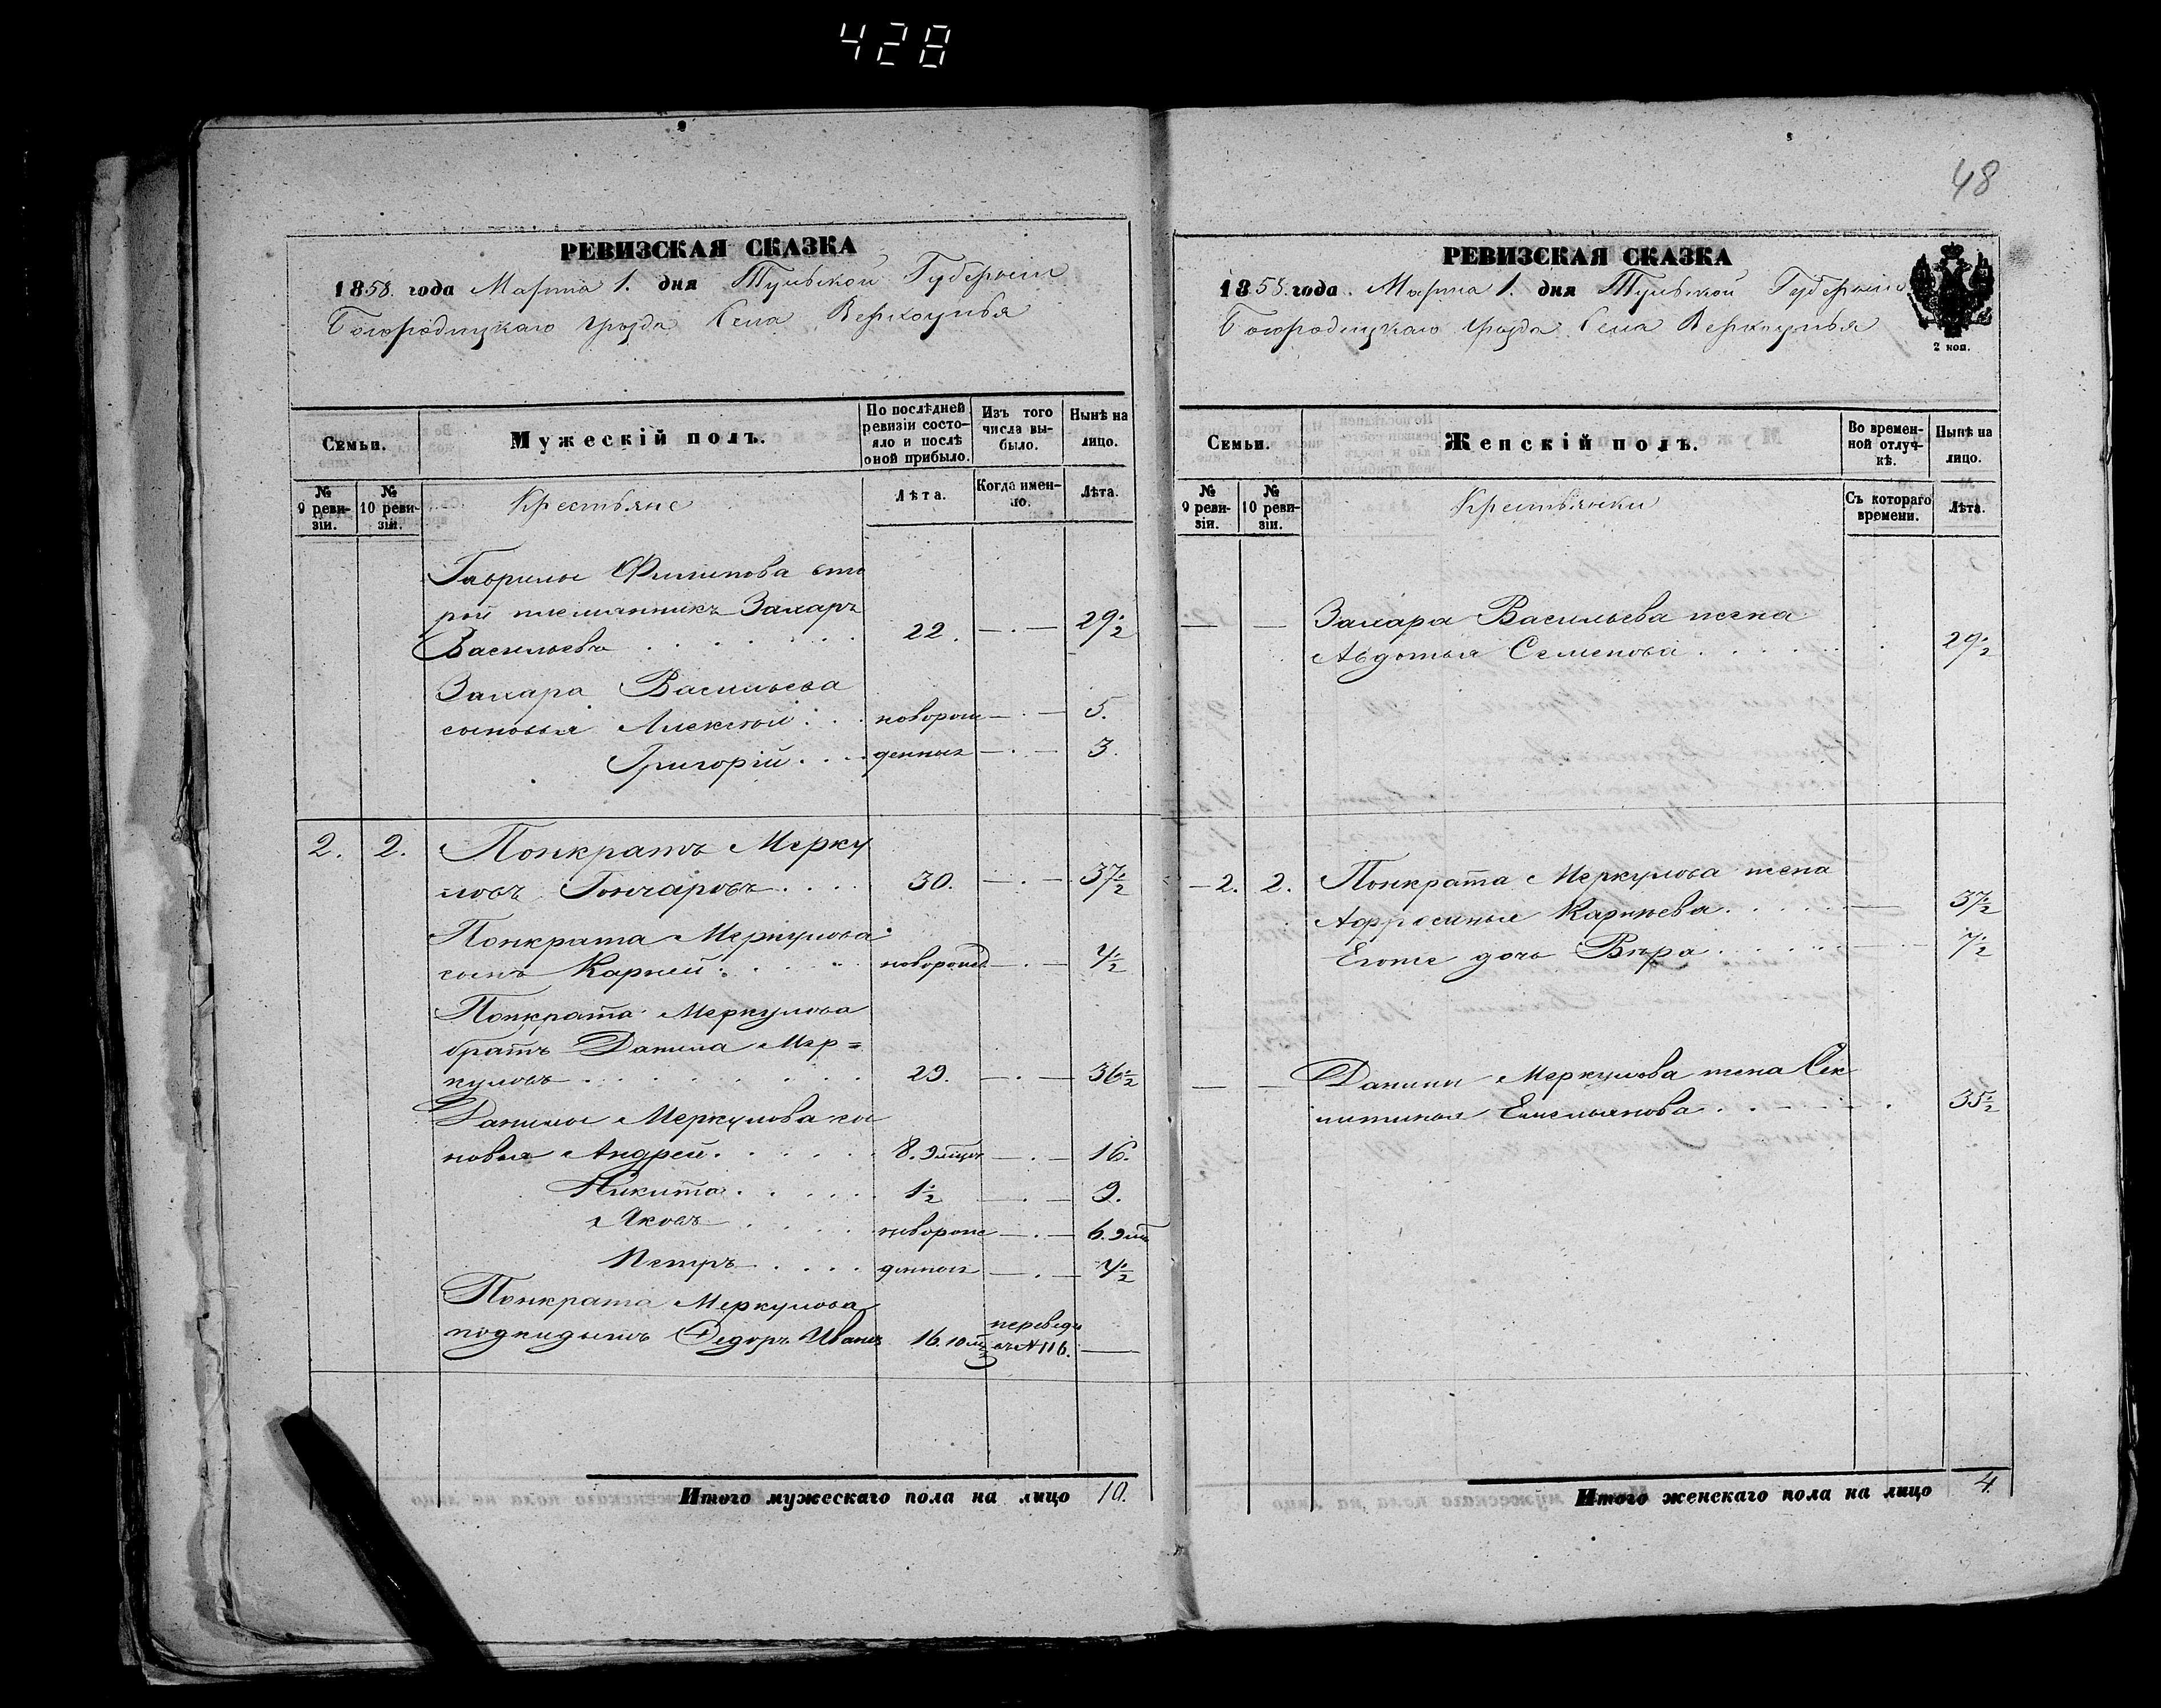 428
48
РЕВИЗСКАЯ СКАЗКА
1858. года Марта 1. дня Тульской Губерніи
Богородицкаго уѣзда Села Верхоупья
Семьи.
Мужескій полъ.
По послѣдней ревизіи состо-
яло и послѣ
оной прибыло.
Изъ того
числа вы-
было.
Нынѣ на
лицо.
№
9 реви-
зіи.
№
10 реви-
зіи.
Крестьяне
Лѣта.
Когда имен-
но.
Лѣта.
Гаврилы Филипова вто
рой племянникъ Захаръ
Васильевъ . . . . . . 22. —.— 29½
Захара Васильева
сыновья Алексѣй . . . новорож —.— 5.
Григорій . . . . денныя —.— 3.
2. 2. Понкратъ Мерку
ловъ Гончаровъ . . . . 30. —.— 37½
Понкрата Меркулова
сынъ Карпей . . . . . новорожд —.— 4½
Понкрата Меркулова
братъ Данила Мер=
куловъ . . . . . . . . 29. —.— 36½
Данилы Меркулова сы
новья Андрей . . . . . . 8. 9 мѣся —.— 16.
Никита . . . . . 1½ —.— 9.
Яковъ . . . . новорож —.— 6. 9 мѣ
Петръ . . . . . денныя —.— 4½
Понкрата Меркулова
подкидышъ Федоръ Иванъ 16. 10 м переведе
въ № 116. —
Итого мужескаго пола на лицо 10.
РЕВИЗСКАЯ СКАЗКА
1858. года. Марта 1. дня Тульской Губерніи
Богородицкаго уѣзда Села Верхоупья
2 коп.
Семьи.
Женскій полъ.
Во времен-
ной отлуч-
кѣ.
Нынѣ на
лицо.
№
9 реви-
зіи.
№
10 реви-
зіи.
Крестьянки
Съ котораго
времени.
Лѣта.
— — Захара Васильева жена
Авдотья Семенова . . . . . . . 29½
— 2. 2. Понкрата Меркулова жена
Афросинья Карнѣева . . . . . — 37½
Егоже дочь Вѣра . . . . . . — 7½
— — Данилы Меркулова жена Сек
литинья Емельянова . . . . . . 35½
Итого женскаго пола на лицо 4.